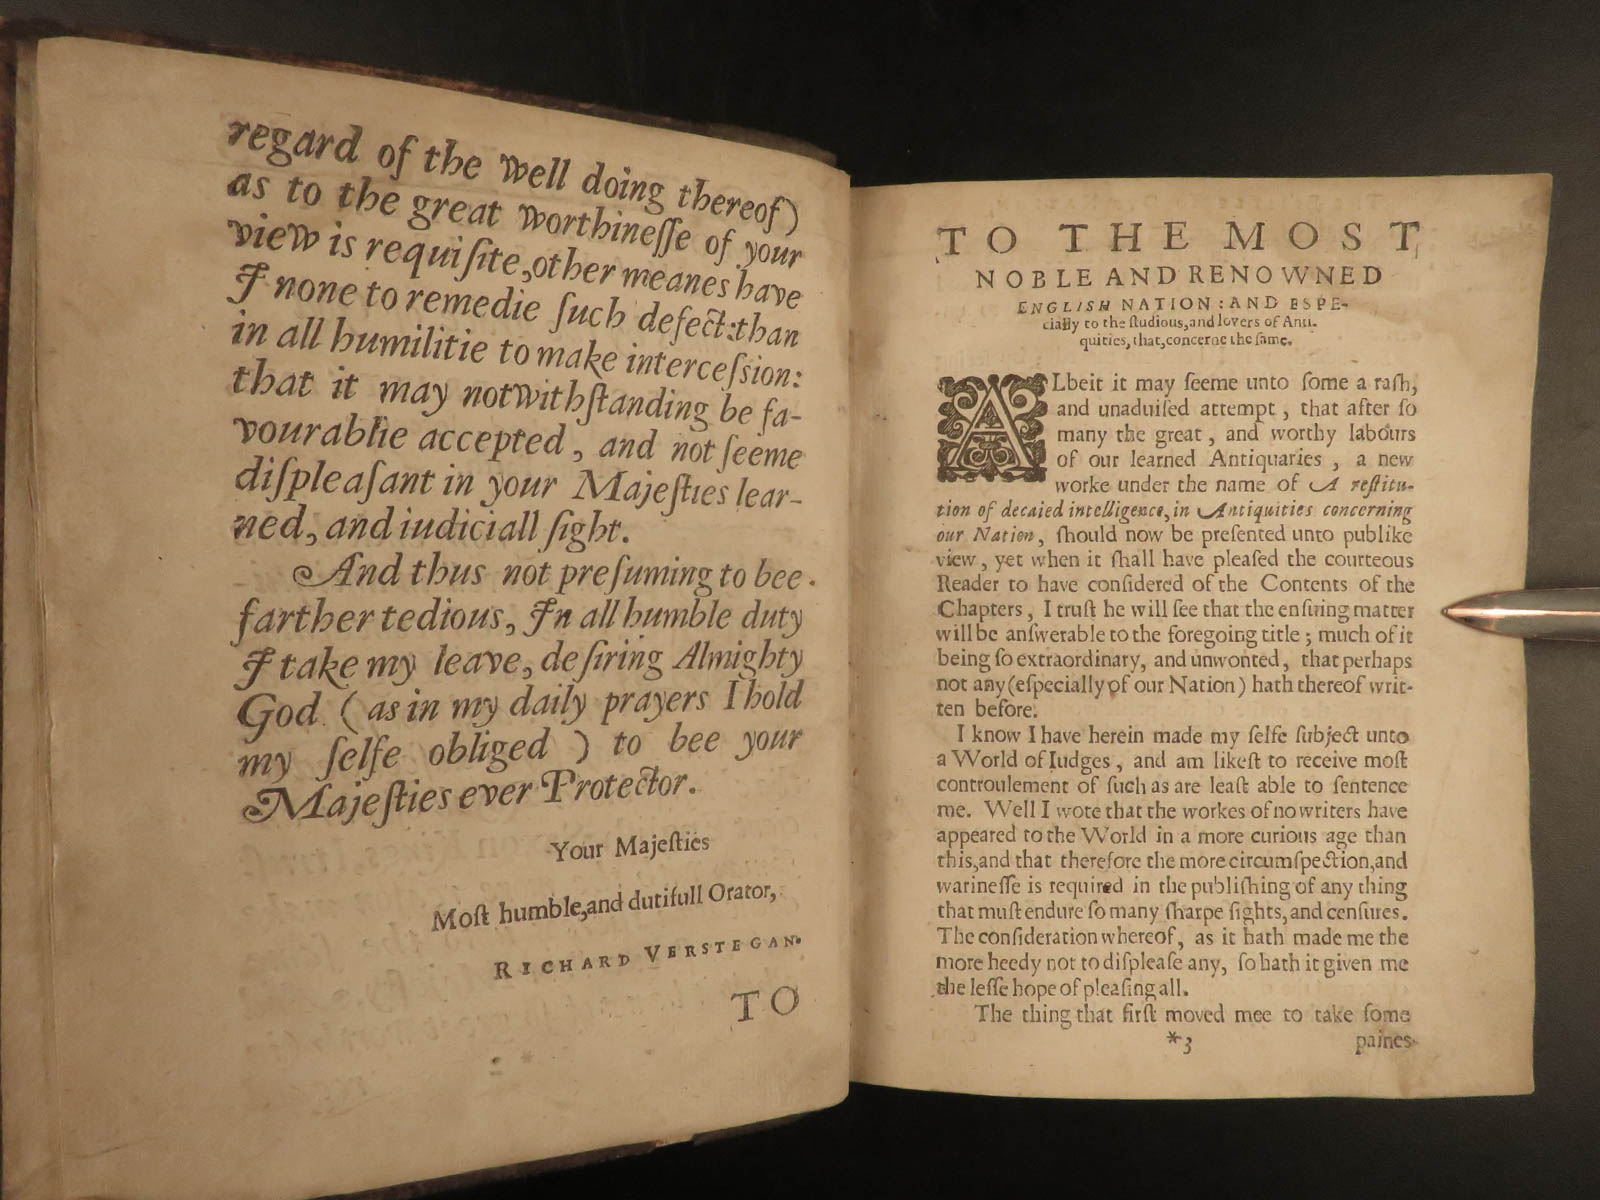 regard of the well doing thereof)
as to the great worthineſſe of your
view is requiſite,other meanes have
I none to remedie ſuch defect:than
in all humilitie to make interceſsion:
that it may notwithſtanding be fa-
vourablie accepted, and not ſeeme
diſpleaſant in your Majeſties lear-
ned, and iudiciall ſight.
And thus not preſuming to bee
farther tedious, In all humble duty
I take my leave, deſiring Almighty
God (as in my daily prayers I hold
my ſelfe obliged ) to bee your
Majeſties ever Protector.
Your Majeſties
Moſt humble,and dutifull Orator,
RICHARD VERSTEGAN.
TO
TO THE MOST
NOBLE AND RENOWNED
ENGLISH NATION: AND ESPE-
cially to the ſtudious,and lovers of Anti-
quities, that,concerne the ſame.
ALbeit it may ſeeme unto ſome a raſh,
and unaduiſed attempt, that after ſo
many the great, and worthy labours
of our learned Antiquaries, a new
worke under the name of A reſtitu-
tion of decaied intelligence,in Antiquities concerning
our Nation, ſhould now be preſented unto publike
view, yet when it ſhall have pleaſed the courteous
Reader to have conſidered of the Contents of the
Chapters, I truſt he will ſee that the enſuing matter
will be anſwerable to the foregoing title; much of it
being ſo extraordinary, and unwonted, that perhaps
not any (eſpecially of our Nation) hath thereof writ-
ten before.
I know I have herein made my ſelfe ſubject unto
a World of Iudges, and am likeſt to receive moſt
controulement of ſuch as are leaſt able to ſentence
me. Well I wote that the workes of no writers have
appeared to the World in a more curious age than
this,and that therefore the more circumſpection,and
warineſſe is required in the publiſhing of any thing
that muſt endure ſo many ſharpe ſights,and cenſures.
The conſideration whereof, as it hath made me the
more heedy not to diſpleaſe any, ſo hath it given me
the leſſe hope of pleaſing all.
The thing that firſt moved mee to take ſome
*3 paines